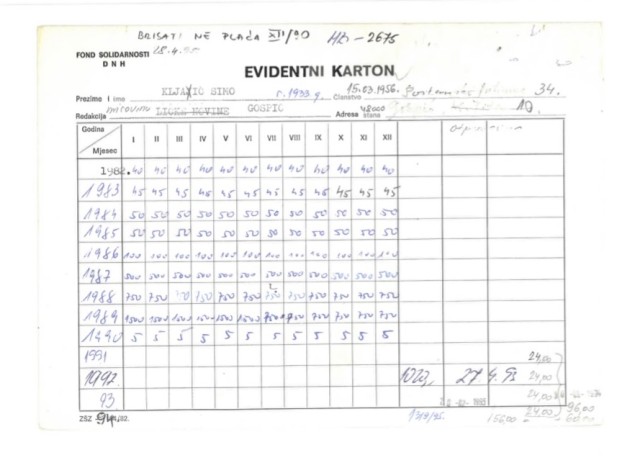 BRISATI NE PLAĆA XII/90 HK-2675
FOND SOLIDARNOSTI 18.4.95
D N H
EVIDENTNI KARTON
Prezime i ime KLJAJIĆ SIMO r.1933.g. Članstvo 15.03.1956. 34.
Redakcija LIČKE NOVINE GOSPIĆ Adresa stana 48000 10.
Godina Mjesec I II III IV V VI VII VIII IX X XI XII
1982. 40 40 40 40 40 40 40 40 40 40 40 40
1983 45 45 45 45 45 45 45 45 45 45 45 45
1984 50 50 50 50 50 50 50 50 50 50 50 50
1985 50 50 50 50 50 50 50 50 50 50 50 50
1986 100 100 100 100 100 100 100 100 100 100 100 100
1987 500 500 500 500 500 500 500 500 500 500 500 500
1988 750 750 750 750 750 750 750 750 750 750 750
1989 1500 1500 1500 1500 1500 1500 750 750 750 750 750
1990 5 5 5 5 5 5 5 5 5 5 5 5
1991 24,00
1992. 27.4.93 24,00
93 24,00
ZSZ 94. 24,00 96,00
156,00 60,00